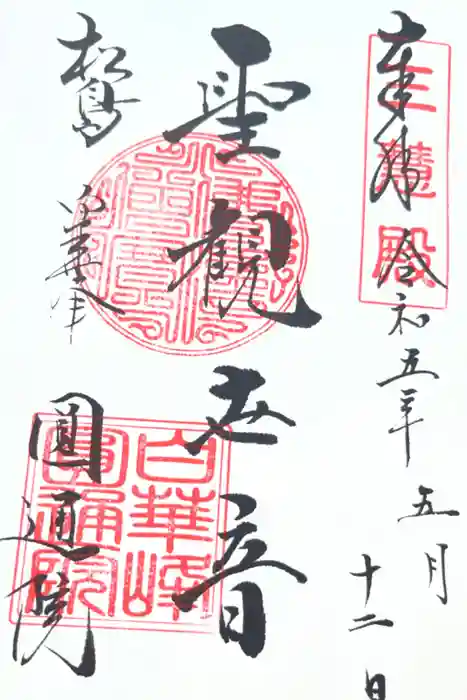 奉拝
令和五年
五月
十二日
三慧殿
聖観世音
松島
白華峰
圓通院
白華峰
圓通院